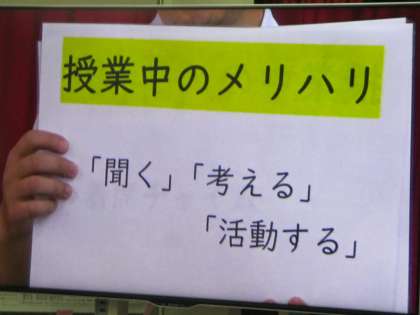 授業中のメリハリ
「聞く」「考える」
「活動する」